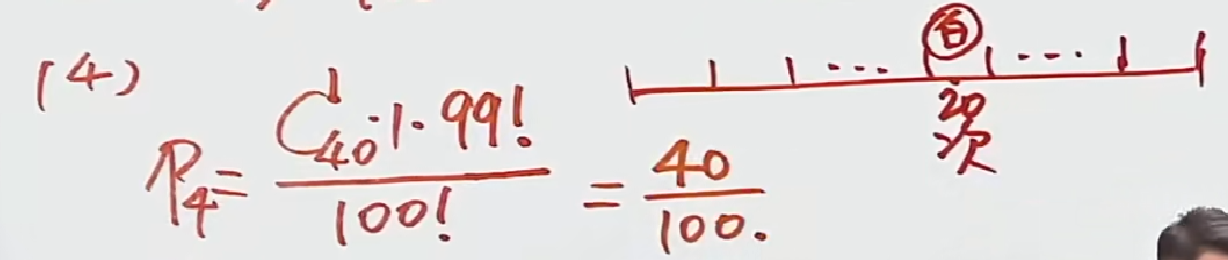 (4)
P₄ = C₄₀¹·1·99! / 100! = 40 / 100.
白
... ...
20
次